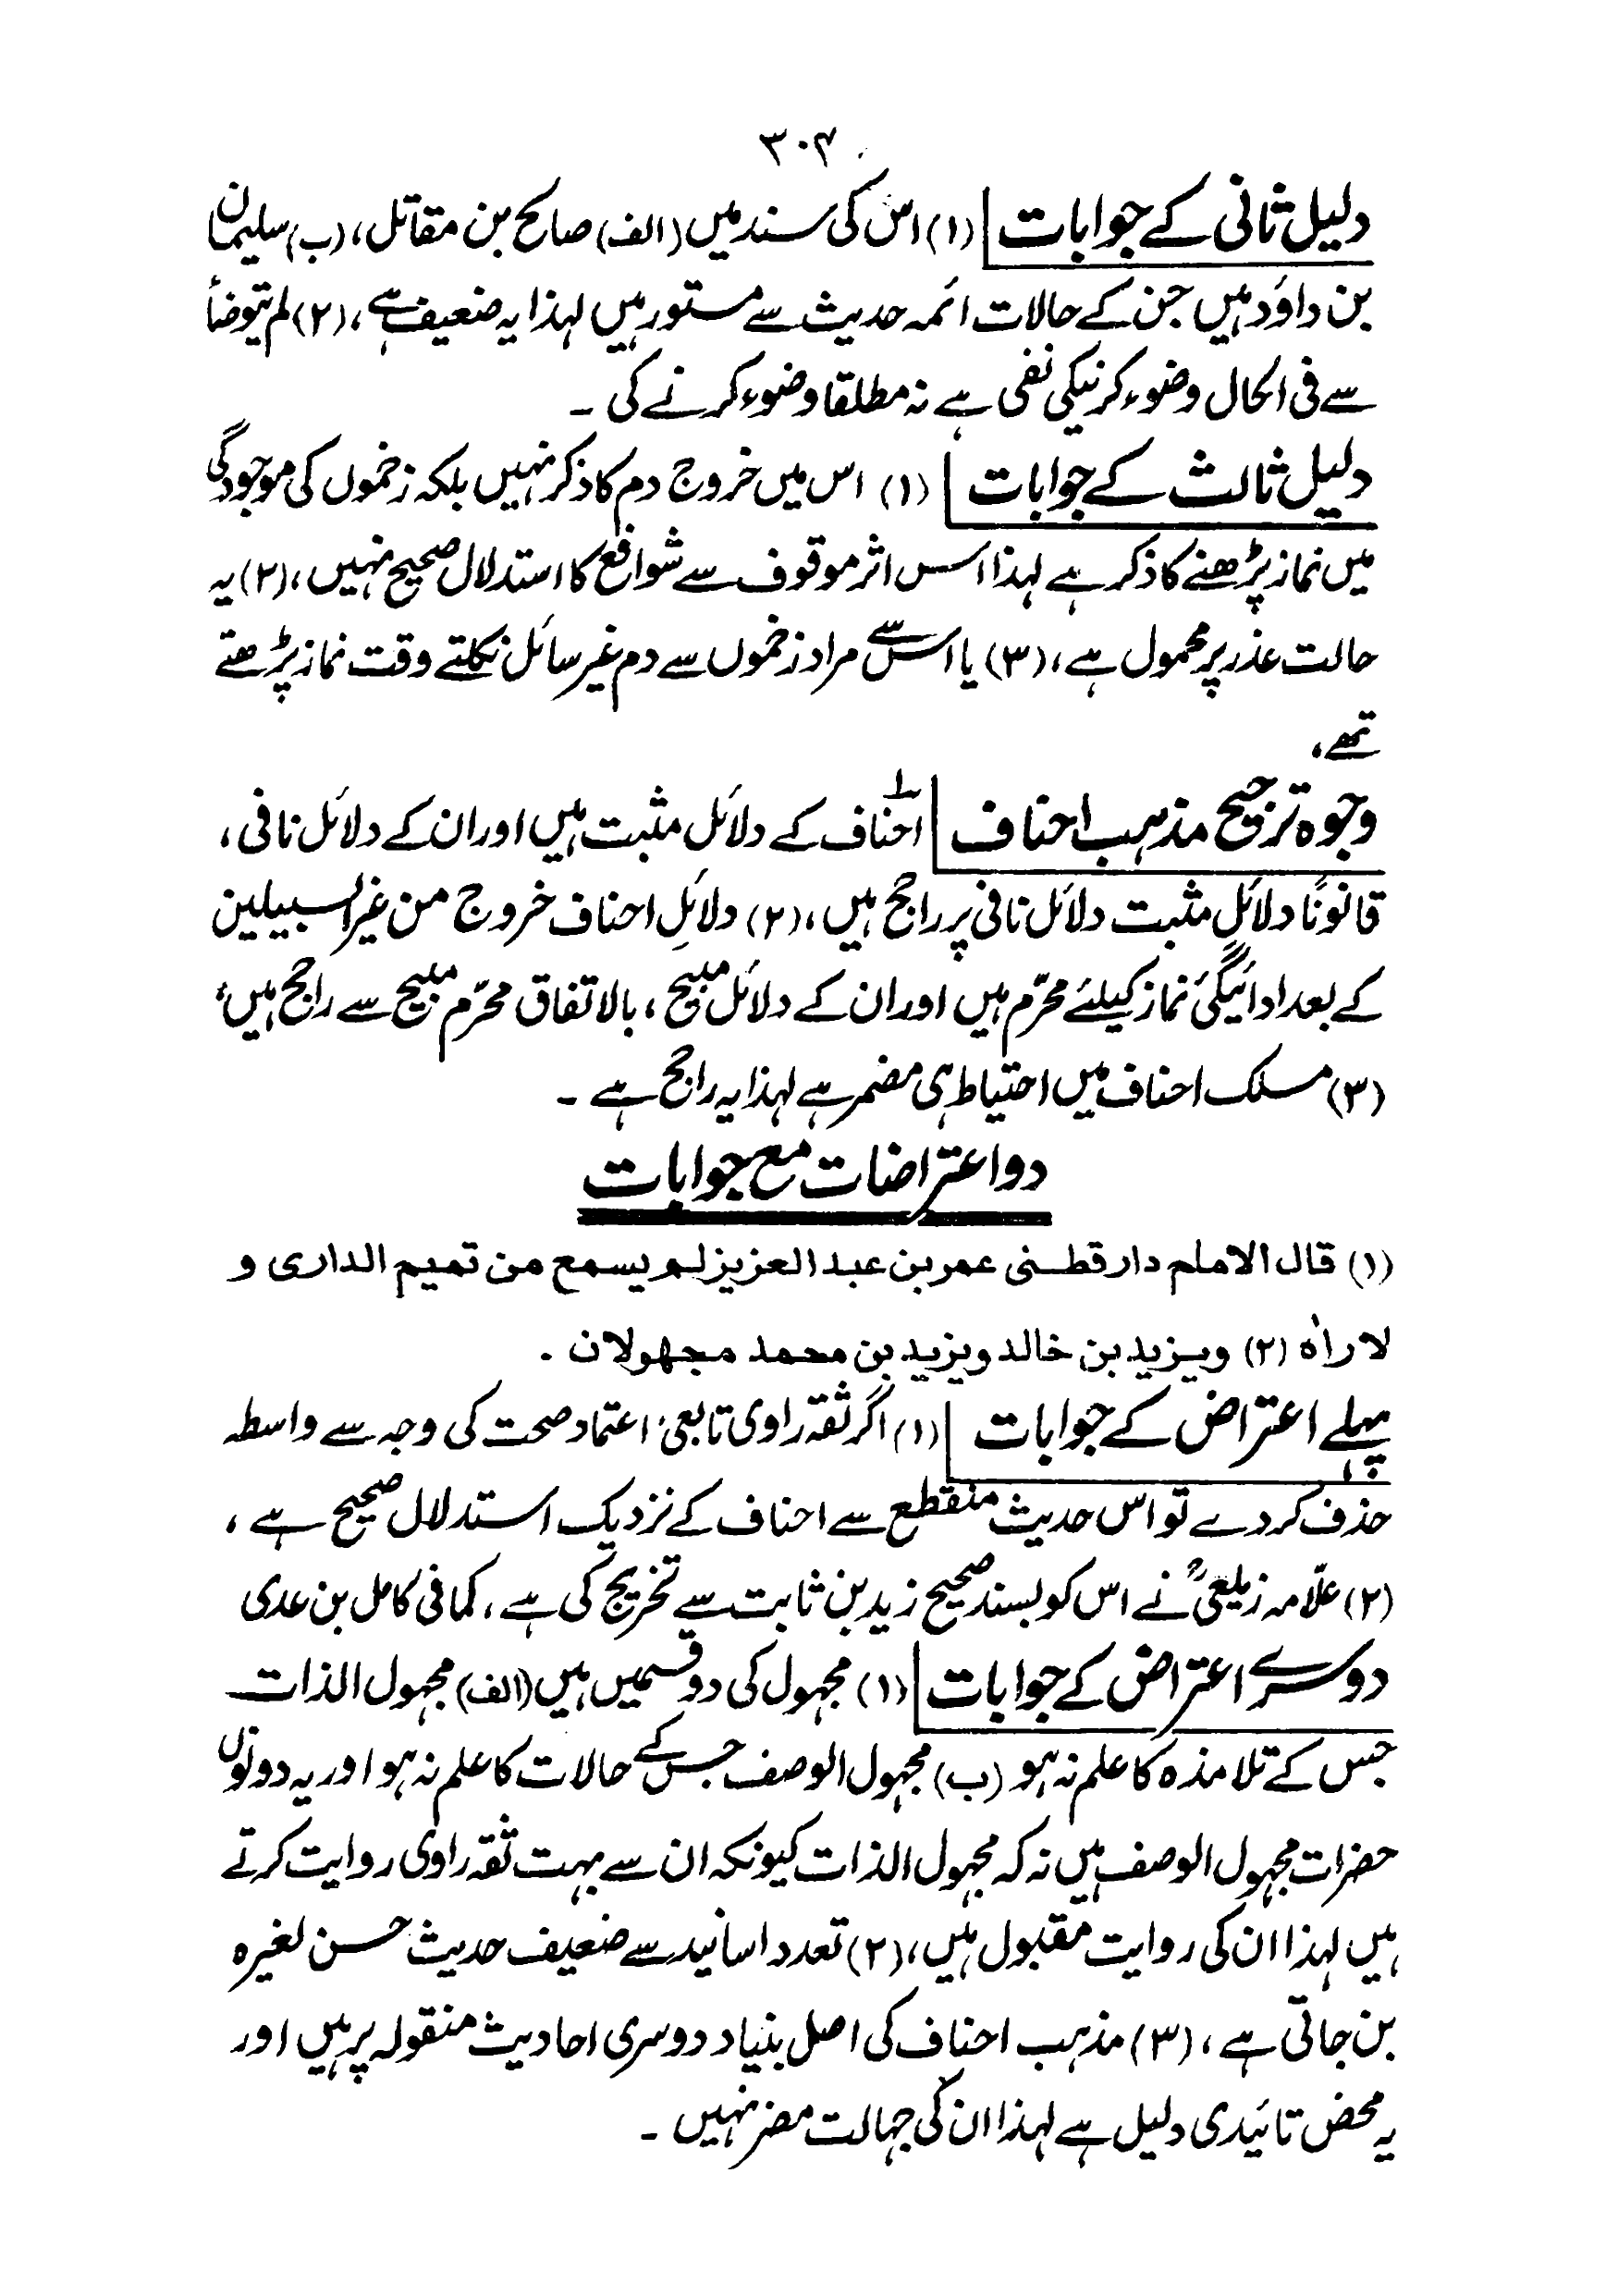 ۳۰۴
دلیل ثانی کے جوابات (۱) اس کی سند میں (الف) صالح بن مقاتل، (ب) سلیمان
بن داؤد ہیں جن کے حالات ائمہ حدیث سے مستور ہیں لہذا یہ ضعیف ہے، (۲) لم یتوضأ
سے فی الحال وضوء کرنیکی نفی ہے نہ مطلقا وضوء کرنے کی ۔
دلیل ثالث کے جوابات (۱) اس میں خروج دم کا ذکر نہیں بلکہ زخموں کی موجودگی
میں نماز پڑھنے کا ذکر ہے لہذا اس اثر موقوف سے شوافع کا استدلال صحیح نہیں، (۲) یہ
حالت عذر پر محمول ہے، (۳) یا اس سے مراد زخموں سے دم غیر سائل نکلتے وقت نماز پڑھتے
تھے،
وجوہ ترجیح مذہب احناف احناف کے دلائل مثبت ہیں اور ان کے دلائل نافی،
قانونًا دلائلِ مثبت دلائل نافی پر راجح ہیں، (۲) دلائلِ احناف خروج من غیر السبیلین
کے بعد ادائیگیٔ نماز کیلئے محرّم ہیں اور ان کے دلائل مبیح، بالاتفاق محرّم مبیح سے راجح ہیں،
(۳) مسلک احناف میں احتیاط ہی مضمر ہے لہذا یہ راجح ہے ۔
دو اعتراضات مع جوابات
(۱) قال الامام دارقطنی عمر بن عبد العزیز لم یسمع من تمیم الداری و
لا راٰہ (۲) ویزید بن خالد ویزید بن محمد مجهولان ۔
پہلے اعتراض کے جوابات (۱) اگر ثقہ راوی تابعی، اعتماد صحت کی وجہ سے واسطہ
حذف کر دے تو اس حدیث منقطع سے احناف کے نزدیک استدلال صحیح ہے،
(۲) علّامہ زیلعیؒ نے اس کو بسند صحیح زید بن ثابت سے تخریج کی ہے، کما فی کامل بن عدی
دوسرے اعتراض کے جوابات (۱) مجہول کی دو قسمیں ہیں (الف) مجہول الذات
جس کے تلامذہ کا علم نہ ہو (ب) مجہول الوصف جس کے حالات کا علم نہ ہو اور یہ دونوں
حضرات مجہول الوصف ہیں نہ کہ مجہول الذات کیونکہ ان سے بہت ثقہ راوی روایت کرتے
ہیں لہذا ان کی روایت مقبول ہیں، (۲) تعدد اسانید سے ضعیف حدیث حسن لغیرہ
بن جاتی ہے، (۳) مذہب احناف کی اصل بنیاد دوسری احادیث منقولہ پر ہیں اور
یہ محض تائیدی دلیل ہے لہذا ان کی جہالت مضر نہیں ۔